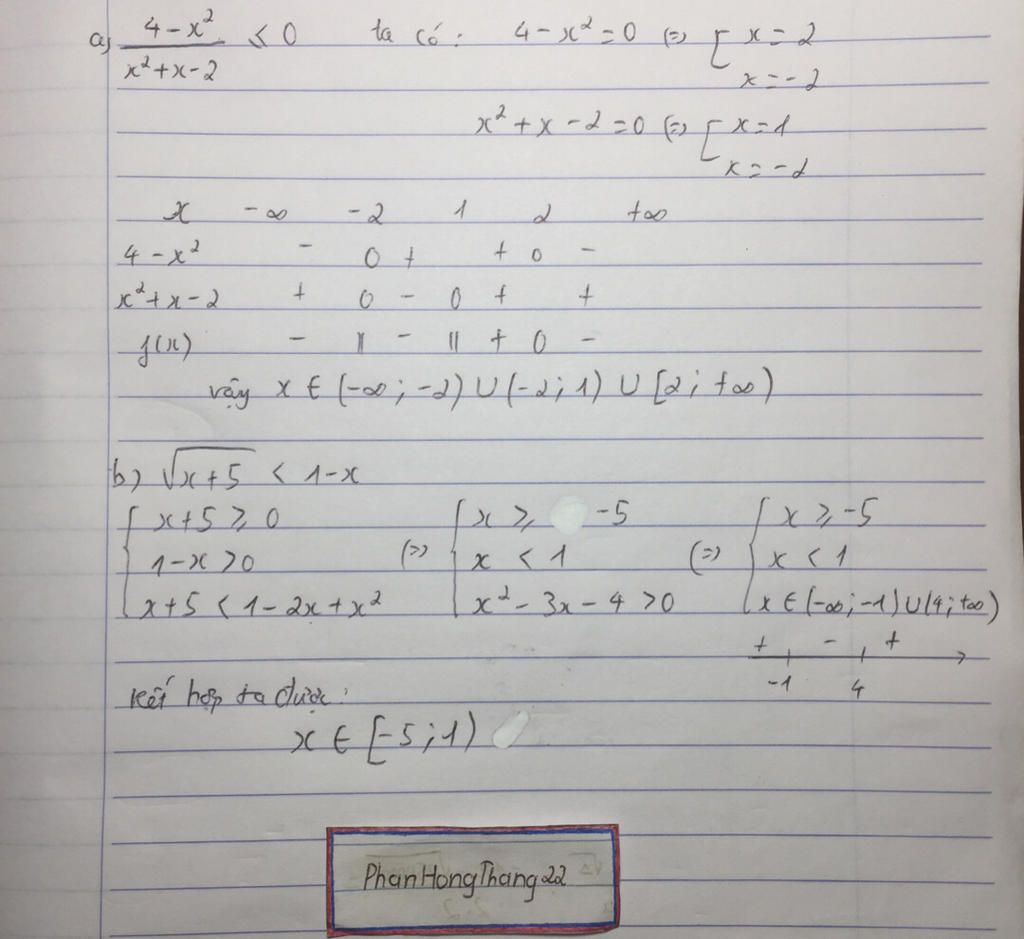 a) \frac{4-x²}{x²+x-2} ≤ 0 ta có: 4-x²=0 (=) [ x=2
x=-2
x²+x-2=0 (=) [ x=1
x=-2
x -∞ -2 1 2 +∞
4-x² - 0 + + 0 -
x²+x-2 + 0 - 0 + +
f(x) - || - || + 0 -
vậy x ∈ (-∞;-2) ∪ (-2;1) ∪ [2;+∞)
b) √(x+5) < 1-x
{ x+5 ≥ 0 { x ≥ -5 { x ≥ -5
1-x > 0 (=) x < 1 (=) x < 1
x+5 < 1-2x+x² x²-3x-4 > 0 x ∈ (-∞;-1) ∪ (4;+∞)
+ - +
-1 4
Kết hợp ta được:
x ∈ [-5;1)
PhanHongThang22